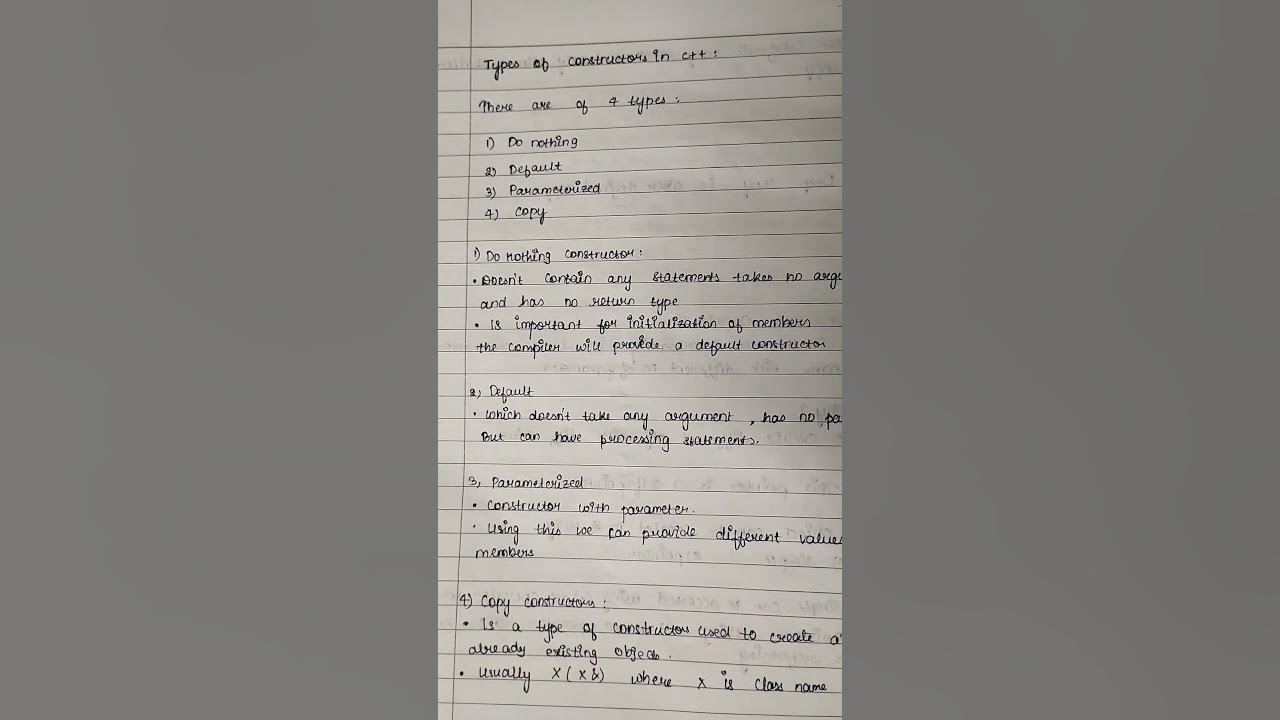 Types of constructors in c++ :
There are of 4 types :
1) Do nothing
2) Default
3) Parameterized
4) copy
1) Do nothing constructor :
• Doesn't contain any statements takes no argu
and has no return type
• Is important for initialization of members
the compiler will provide a default constructor
2) Default
• which doesn't take any argument , has no pa
But can have processing statements.
3) Parameterized
• constructor with parameter.
• using this we can provide different values
members
4) Copy constructors :
• Is a type of constructors used to create a
already existing object .
• usually X ( X &) where X is class name